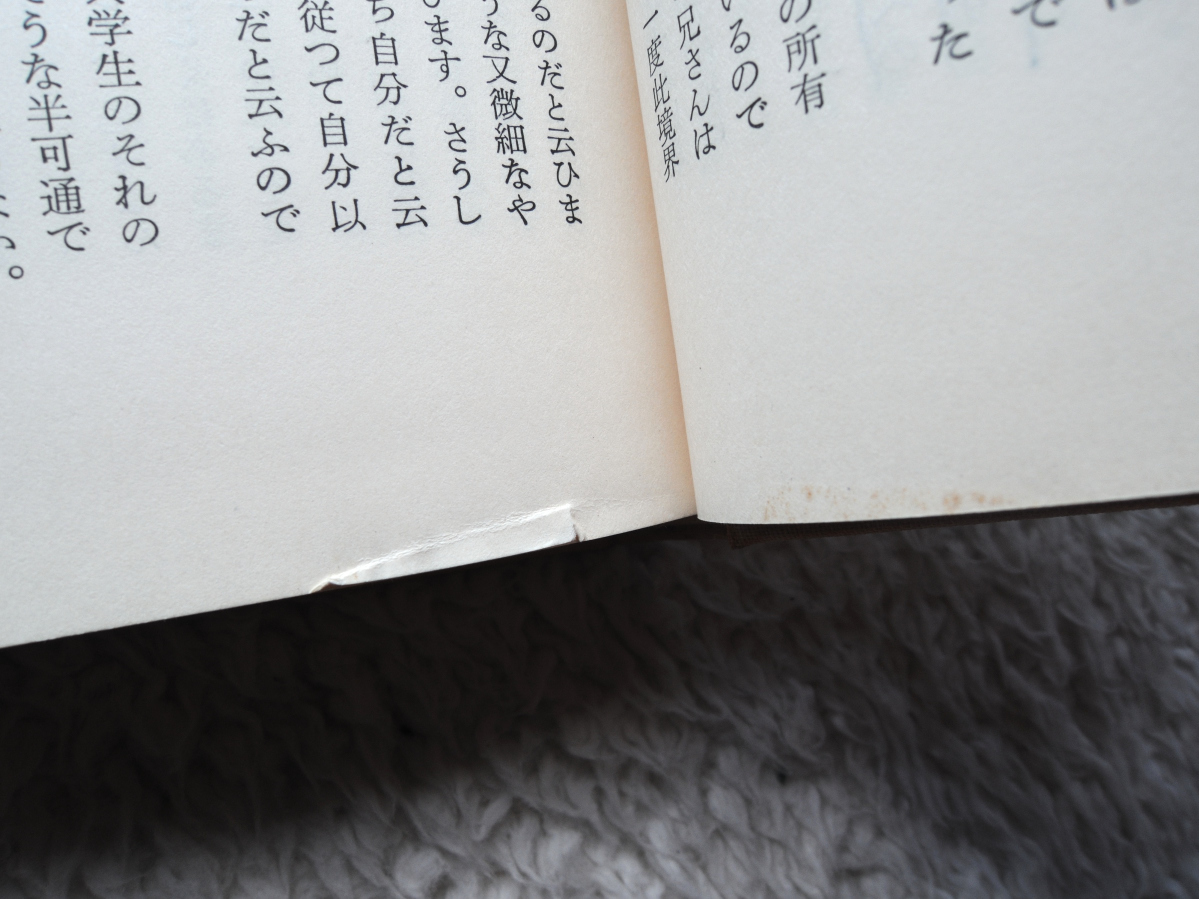 で
った
の所有
いるので
兄さんは
一度此境界
るのだと云ひま
うな又微細なや
ひます。さうし
ち自分だと云
従つて自分以
だと云ふので
学生のそれの
うな半可通で
い。